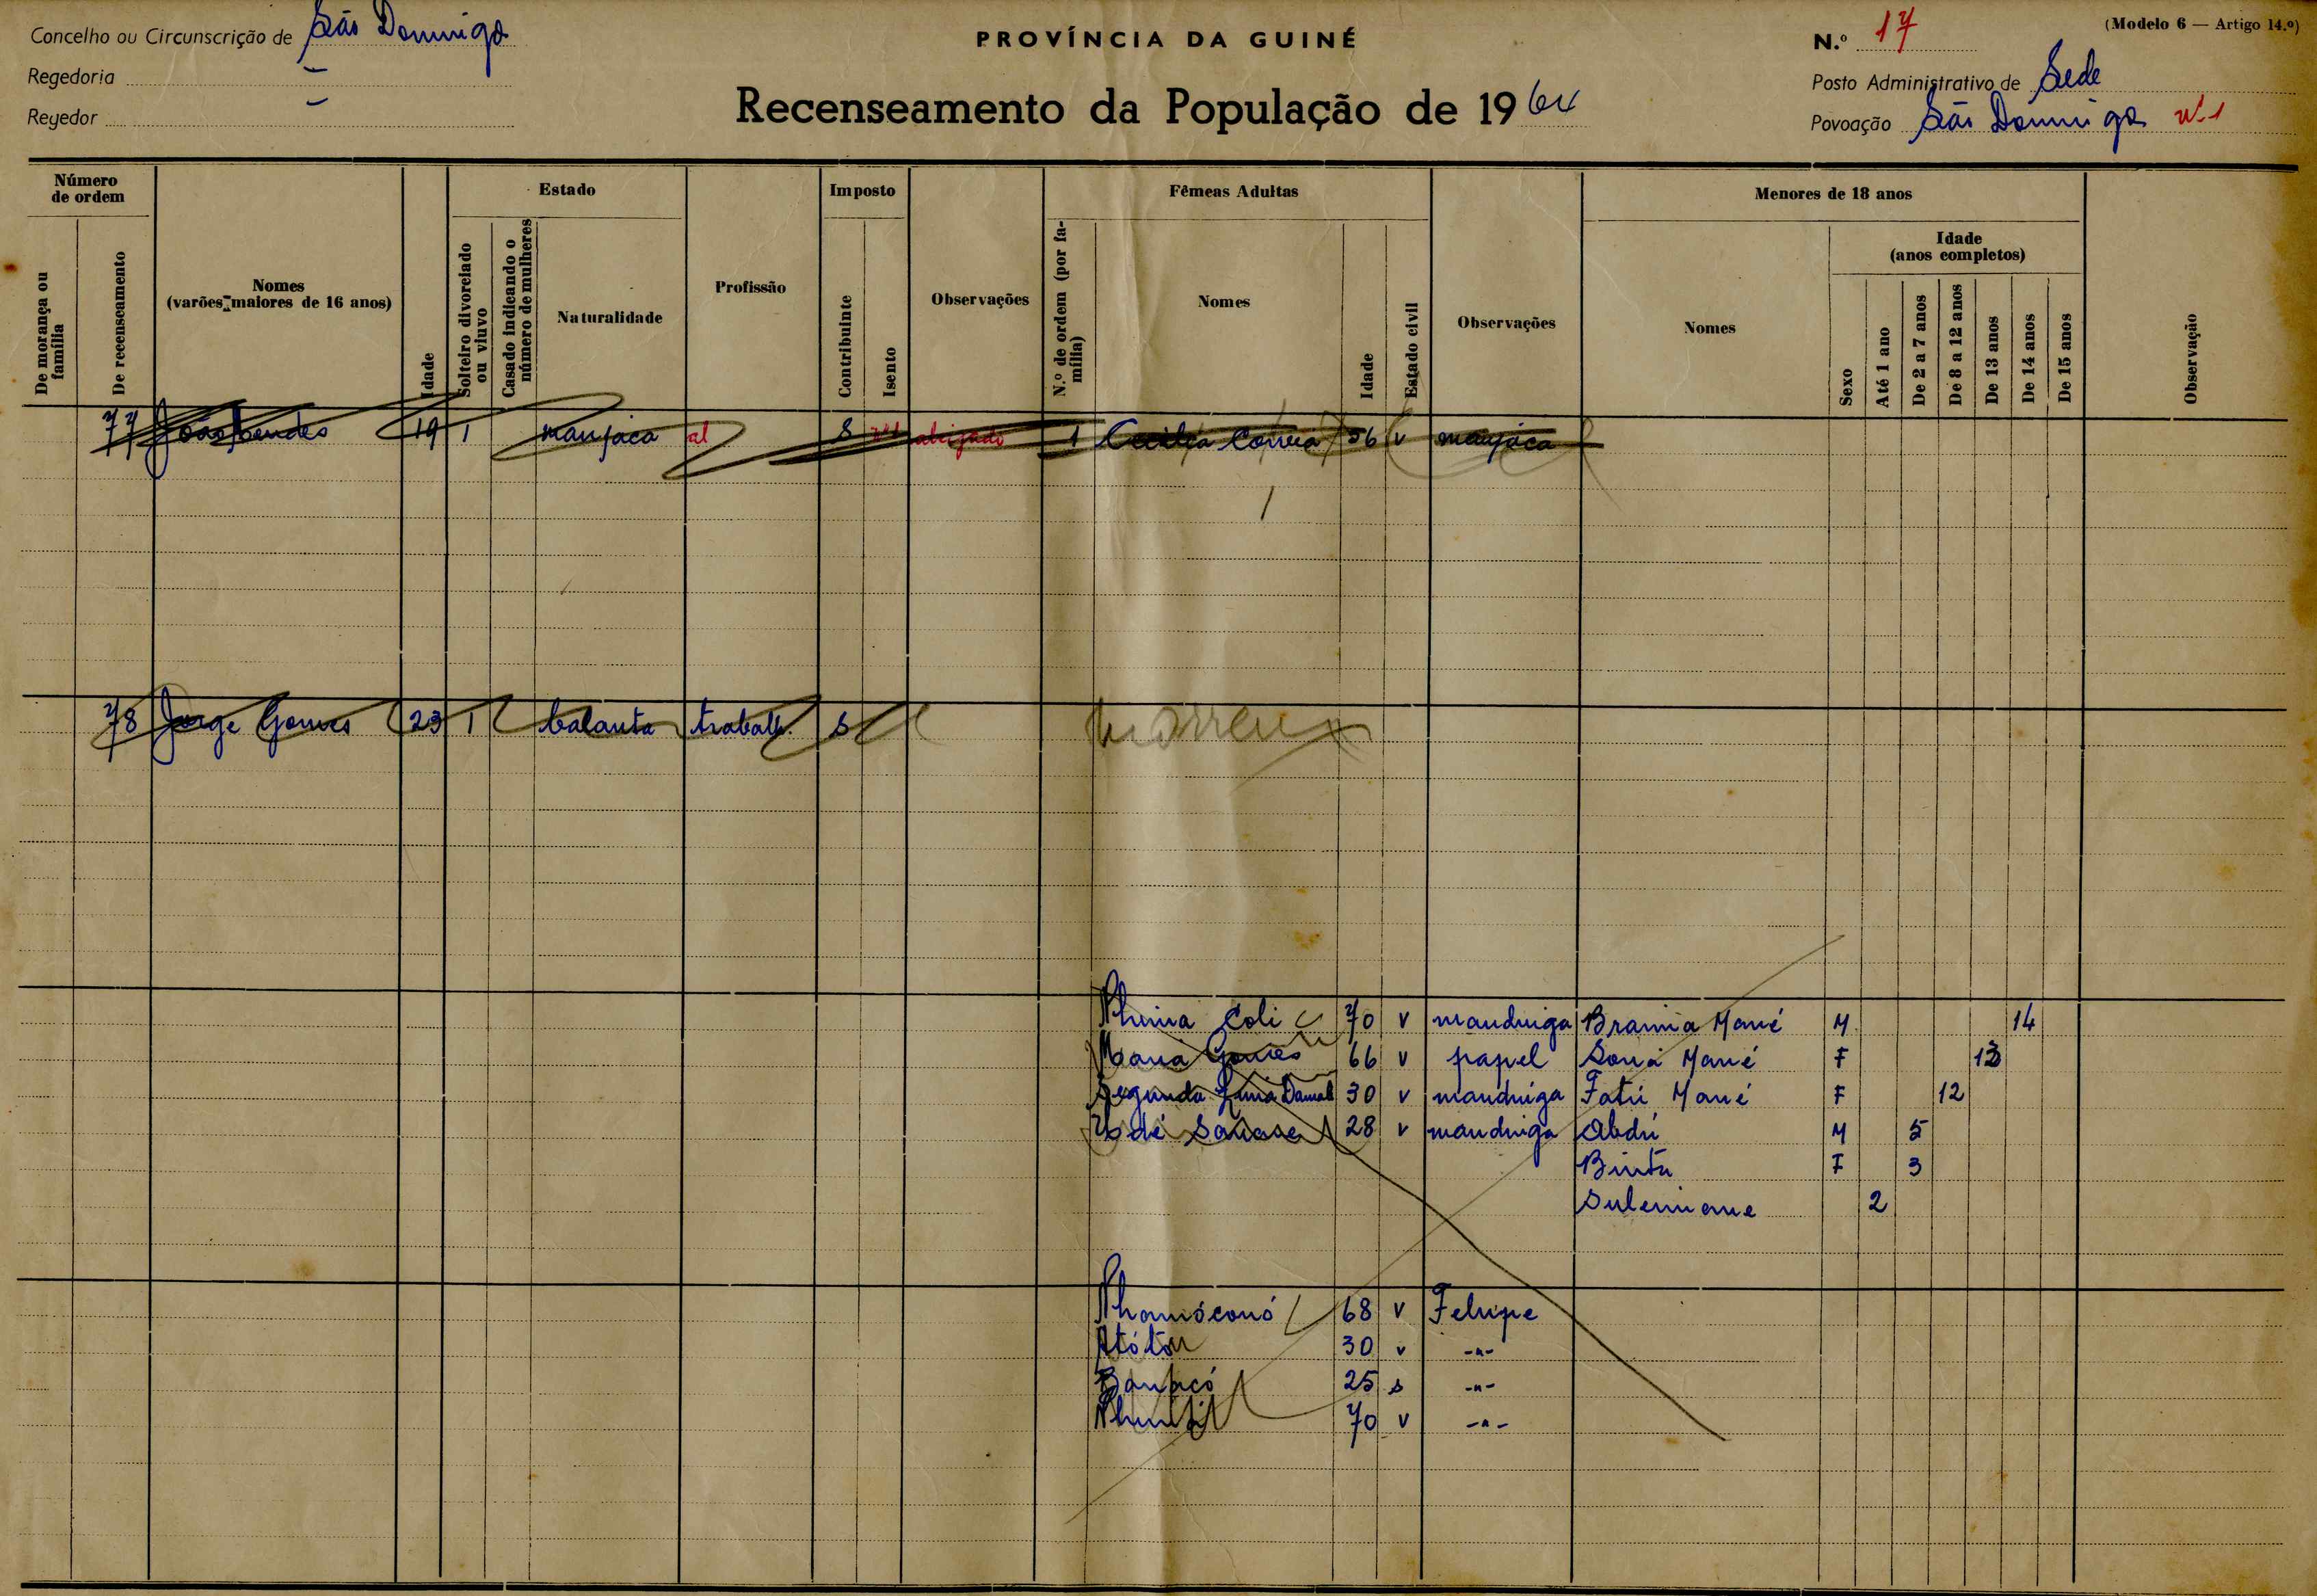 Concelho ou Circunscrição de São Domingos
Regedoria —
Regedor —
PROVÍNCIA DA GUINÉ
Recenseamento da População de 1964
(Modelo 6 — Artigo 14.º)
N.º 17
Posto Administrativo de Sede
Povoação São Domingos nº 1
Número de ordem
De morança ou família
De recenseamento
Nomes (varões maiores de 16 anos)
Idade
Estado
Solteiro divorciado ou viuvo
Casado indicando o número de mulheres
Naturalidade
Profissão
Imposto
Contribuinte
Isento
Observações
Fêmeas Adultas
N.º de ordem (por família)
Nomes
Idade
Estado civil
Observações
Menores de 18 anos
Nomes
Sexo
Idade (anos completos)
Até 1 ano
De 2 a 7 anos
De 8 a 12 anos
De 13 anos
De 14 anos
De 15 anos
Observação
77 João Mendes 19 1 manjaca al S aleijado 1 Cecilia Correia 56 v manjaca
78 Jorge Gomes 23 1 balanta trabalh. S morreu
Nhima Coli 70 v mandinga Brama Mané M 14
Maria Gomes 66 v papel Soná Mané F 13
Segunda 30 v mandinga Fatú Mané F 12
28 v mandinga Abdú M 5
Bintú F 3
Sulemane 2
68 v Felupe
Atóta 30 v -"-
25 s -"-
70 v -"-